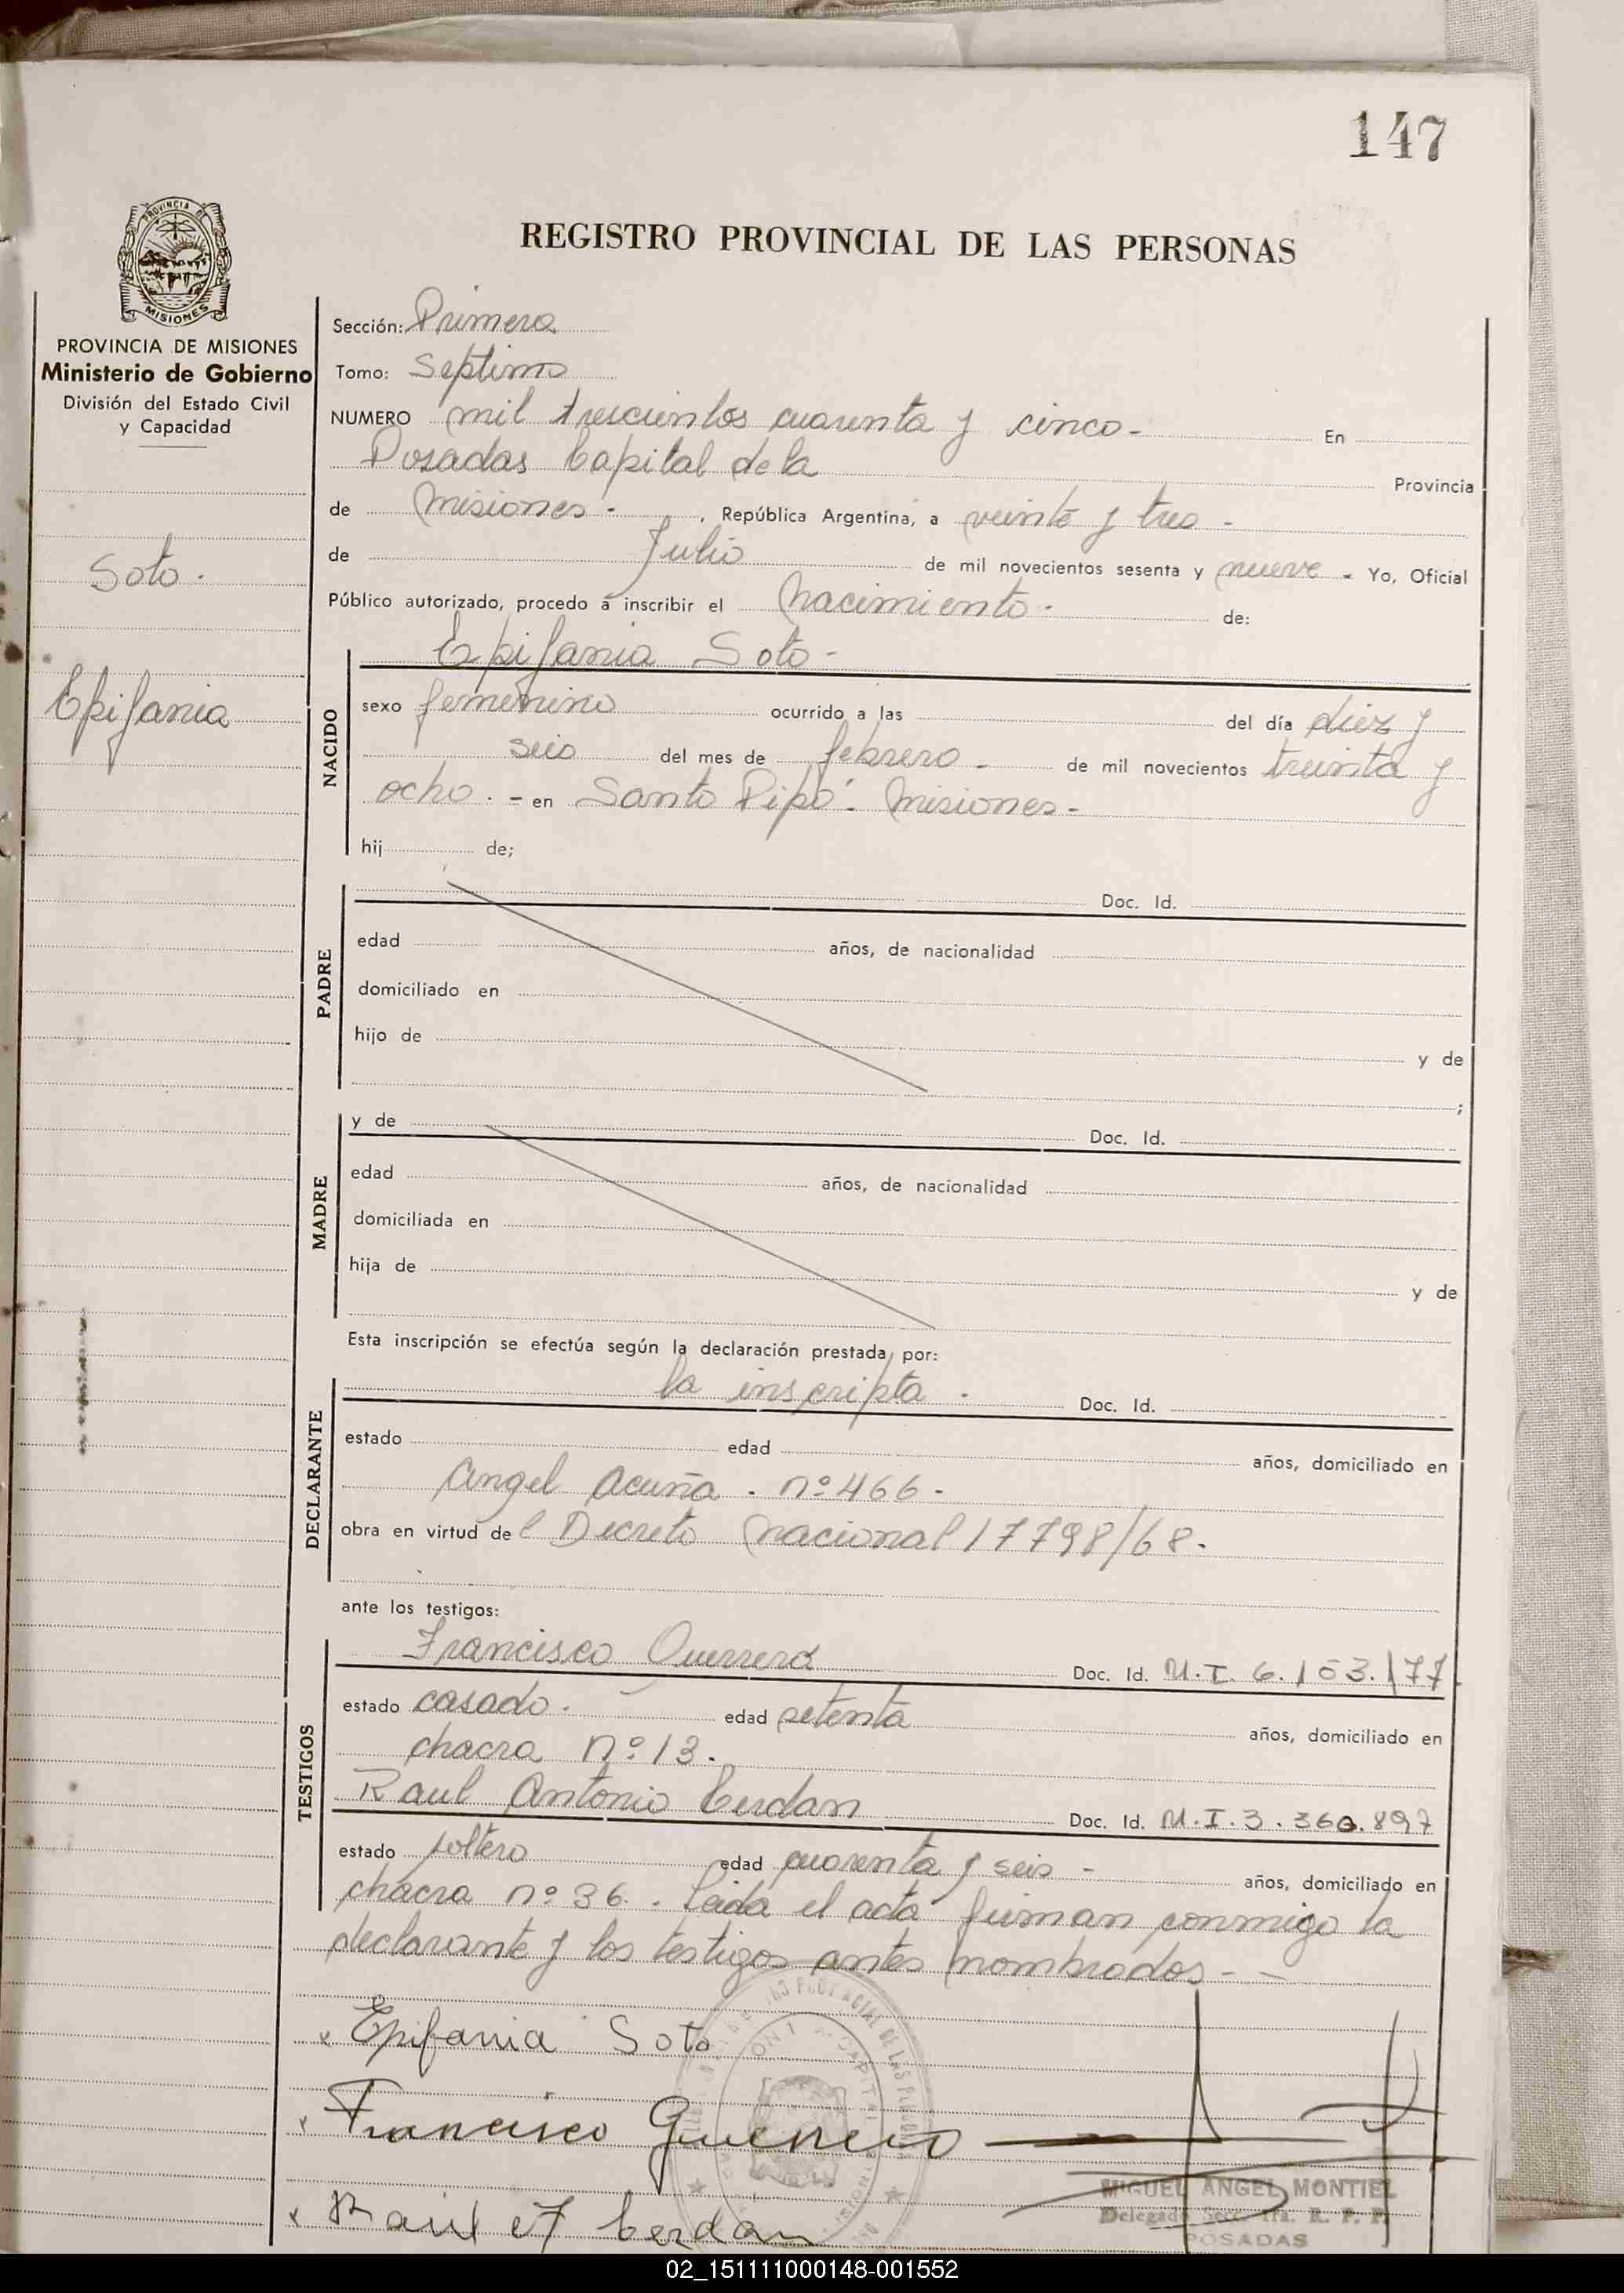 147
PROVINCIA DE
MISIONES
REGISTRO PROVINCIAL DE LAS PERSONAS
PROVINCIA DE MISIONES
Ministerio de Gobierno
División del Estado Civil
y Capacidad
Soto.
Epifania
Sección: Primera
Tomo: Septimo
NUMERO mil trescientos cuarenta y cinco- En
Posadas Capital de la Provincia
de Misiones- , República Argentina, a veinte y tres -
de Julio de mil novecientos sesenta y nueve - Yo, Oficial
Público autorizado, procedo a inscribir el Nacimiento- de:
NACIDO
Epifania Soto-
sexo femenino ocurrido a las del día diez y
seis del mes de febrero - de mil novecientos treinta y
ocho. - en Santo Pipó- Misiones-
hij de;
PADRE
Doc. Id.
edad años, de nacionalidad
domiciliado en
hijo de y de
;
MADRE
y de Doc. Id.
edad años, de nacionalidad
domiciliada en
hija de y de
Esta inscripción se efectúa según la declaración prestada por:
DECLARANTE
la inscripta . Doc. Id.
estado edad años, domiciliado en
Angel Acuña . nº 466.
obra en virtud de l Decreto Nacional 17798/68.
ante los testigos:
TESTIGOS
Francisco Guerrero Doc. Id. M.I. 6.103.177
estado casado. edad setenta años, domiciliado en
chacra nº 13.
Raul Antonio Cerdan Doc. Id. M.I.3.360.897
estado soltero edad cuarenta y seis - años, domiciliado en
chacra nº 36. Leida el acta firman conmigo la
declarante y los testigos antes nombrados- -
x Epifania Soto
x Francisco Guerrero
x Raul A Cerdán
MIGUEL ANGEL MONTIEL
Delegado Secc. 1ra. R. P. P.
POSADAS
02_151111000148-001552